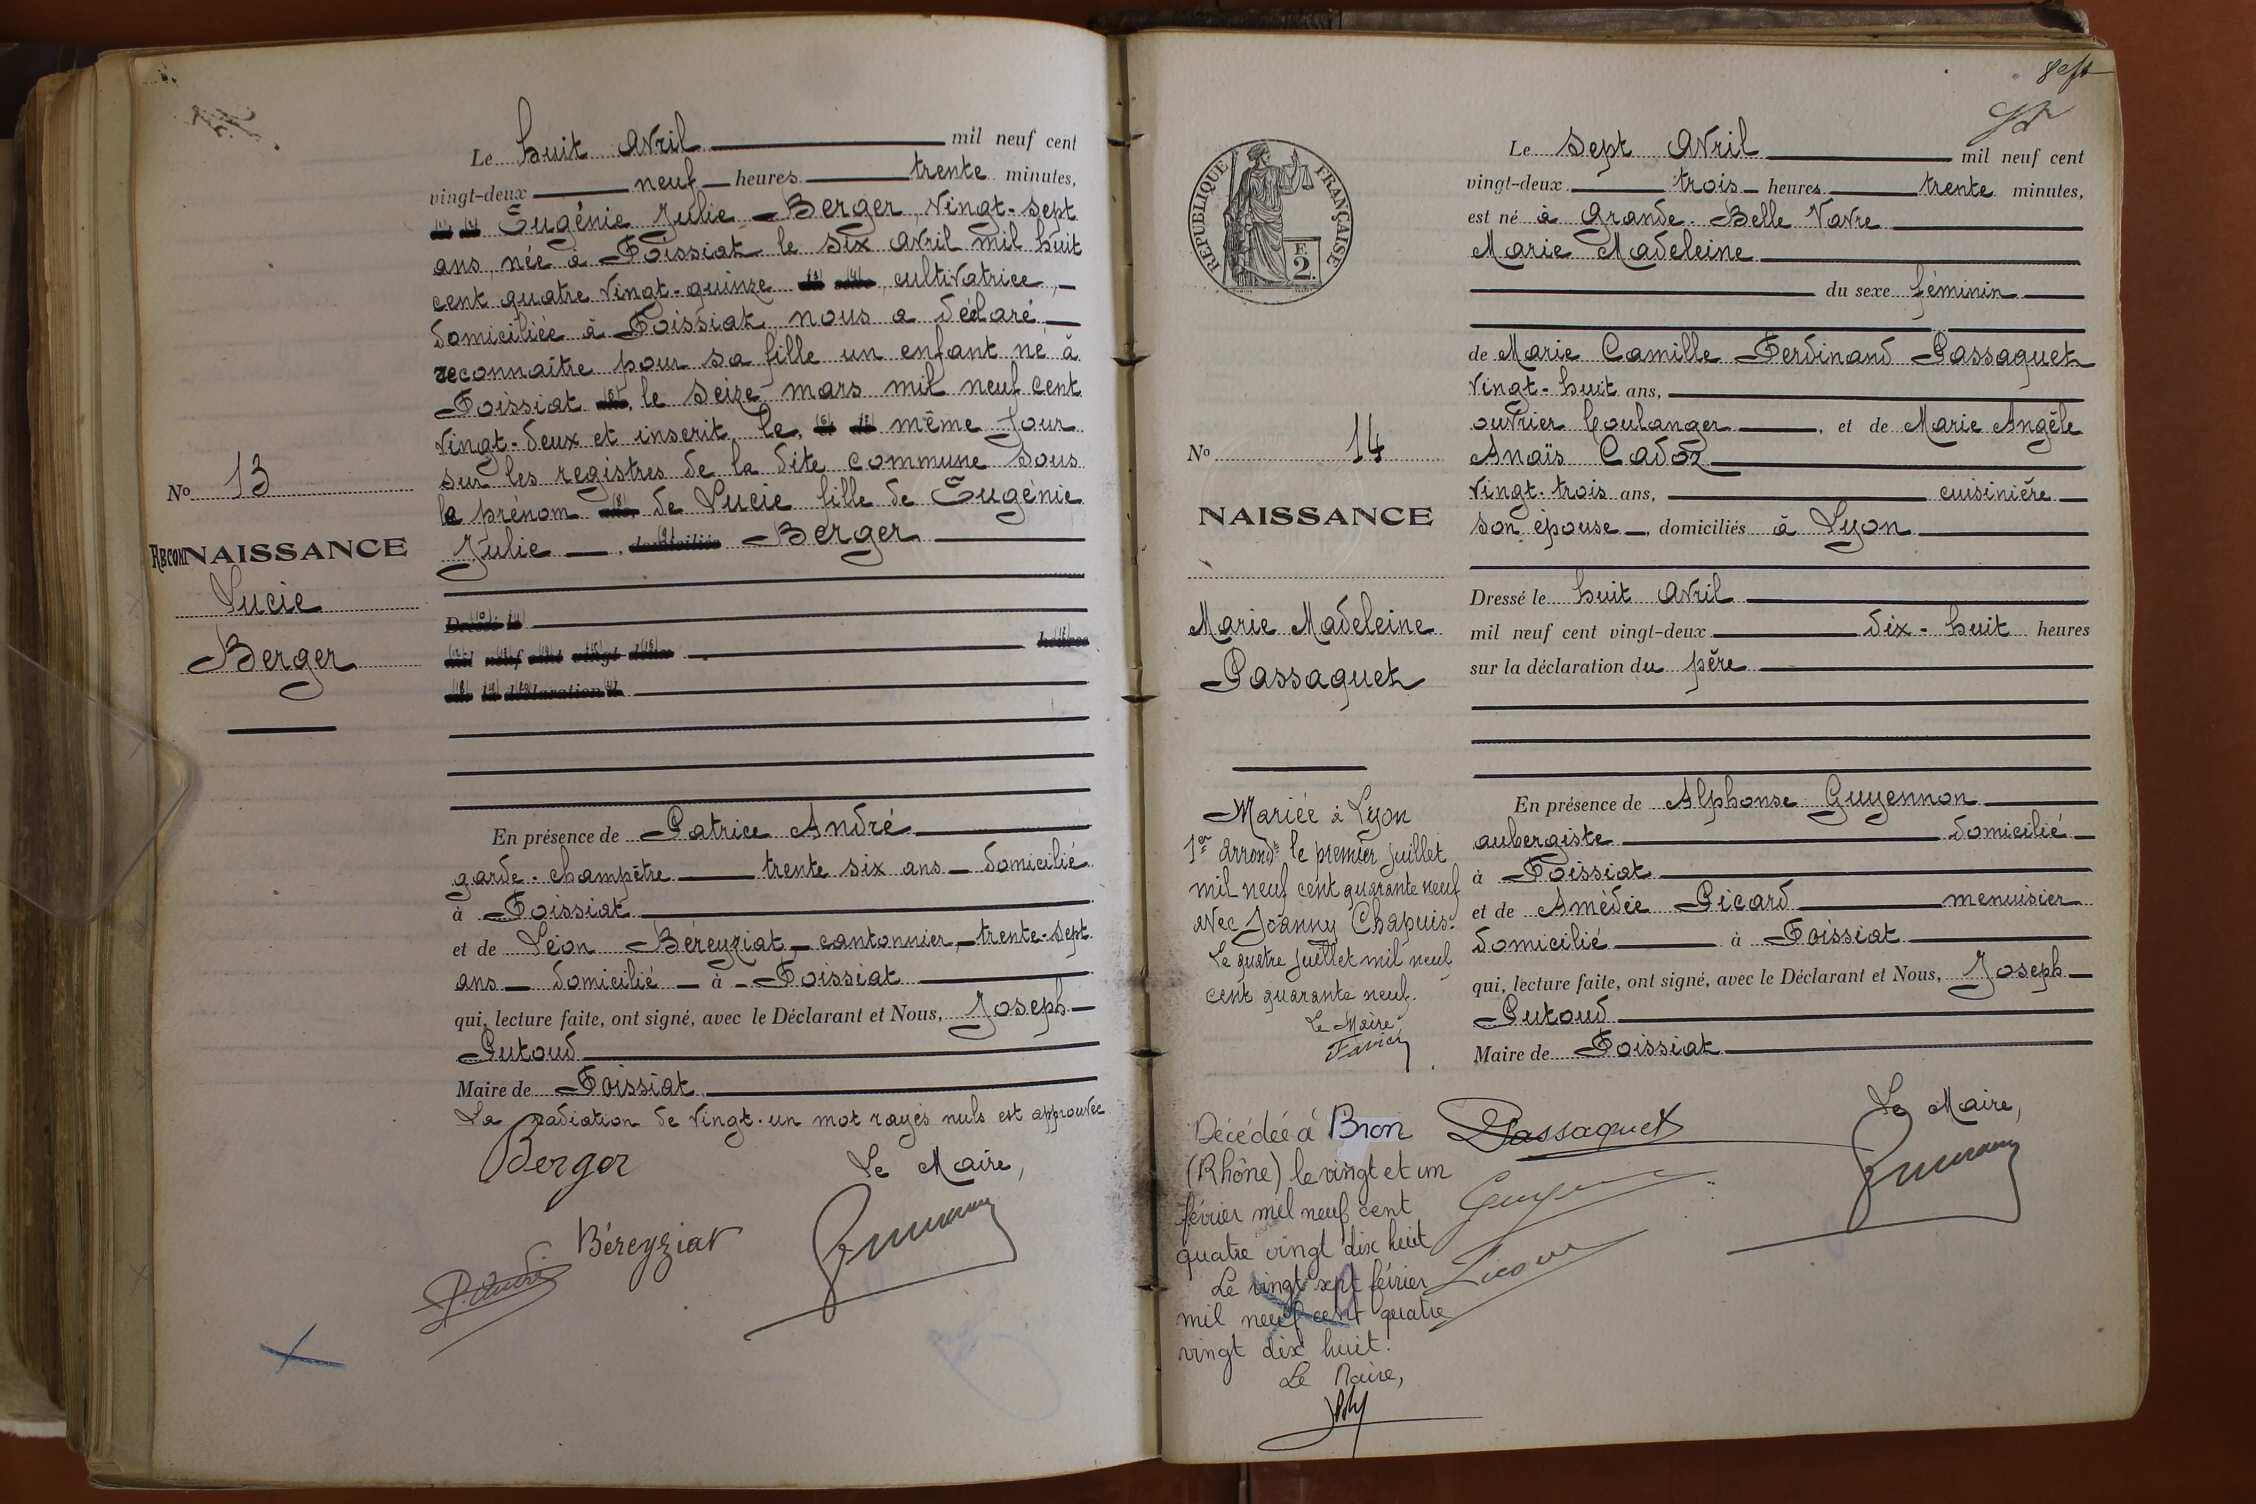 Le huit avril mil neuf cent
vingt-deux neuf heures trente minutes,
Eugénie Julie Berger, vingt-sept
ans née à Foissiat le six avril mil huit
cent quatre vingt-quinze cultivatrice,
domiciliée à Foissiat nous a déclaré
reconnaître pour sa fille un enfant né à
Foissiat, le seize mars mil neuf cent
vingt-deux et inscrit le, même jour
sur les registres de la dite commune sous
le prénom de Lucie fille de Eugénie
Julie Berger
No 13
RECONNAISSANCE
Lucie
Berger
En présence de Patrice André
garde-champêtre trente six ans domicilié
à Foissiat
et de Léon Béreyziat, cantonnier, trente-sept
ans domicilié à Foissiat
qui, lecture faite, ont signé, avec le Déclarant et Nous, Joseph
Putoud
Maire de Foissiat
La radiation de vingt-un mot rayés nuls est approuvée
Berger
Le Maire,
Béreyziat
P. André
8 eft
RÉPUBLIQUE FRANÇAISE
E
2
Le sept avril mil neuf cent
vingt-deux trois heures trente minutes,
est né à Grande-Belle Vavre
Marie Madeleine
du sexe féminin
de Marie Camille Ferdinand Passaquet
vingt-huit ans,
ouvrier boulanger, et de Marie Angèle
Anaïs Cadoz
vingt-trois ans, cuisinière
son épouse, domiciliés à Lyon
No 14
NAISSANCE
Marie Madeleine
Passaquet
Dressé le huit avril
mil neuf cent vingt-deux dix-huit heures
sur la déclaration du père
En présence de Alphonse Guyennon
aubergiste domicilié
à Foissiat
et de Amédée Picard menuisier
domicilié à Foissiat
qui, lecture faite, ont signé, avec le Déclarant et Nous, Joseph
Putoud
Maire de Foissiat
Mariée à Lyon
1er arrondt le premier juillet
mil neuf cent quarante neuf
avec Joanny Chapuis.
Le quatre juillet mil neuf
cent quarante neuf.
Le Maire
Favier
Passaquet
Le Maire,
Décédée à Bron
(Rhône) le vingt et un
février mil neuf cent
quatre vingt dix huit
Le vingt sept février
mil neuf cent quatre
vingt dix huit.
Le Maire,